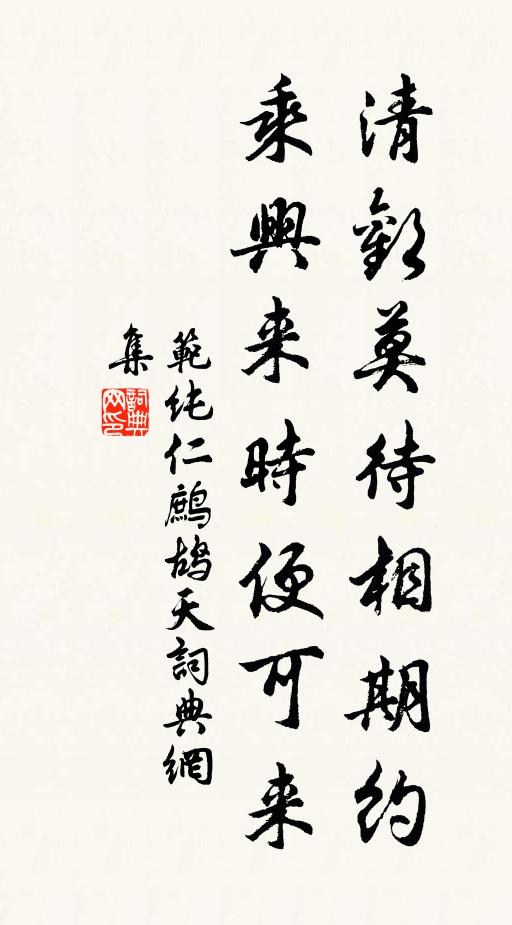 清歡莫待相期約
乘興来時便可来
範纯仁鷓鴣天詞典網
集
詞典
网印